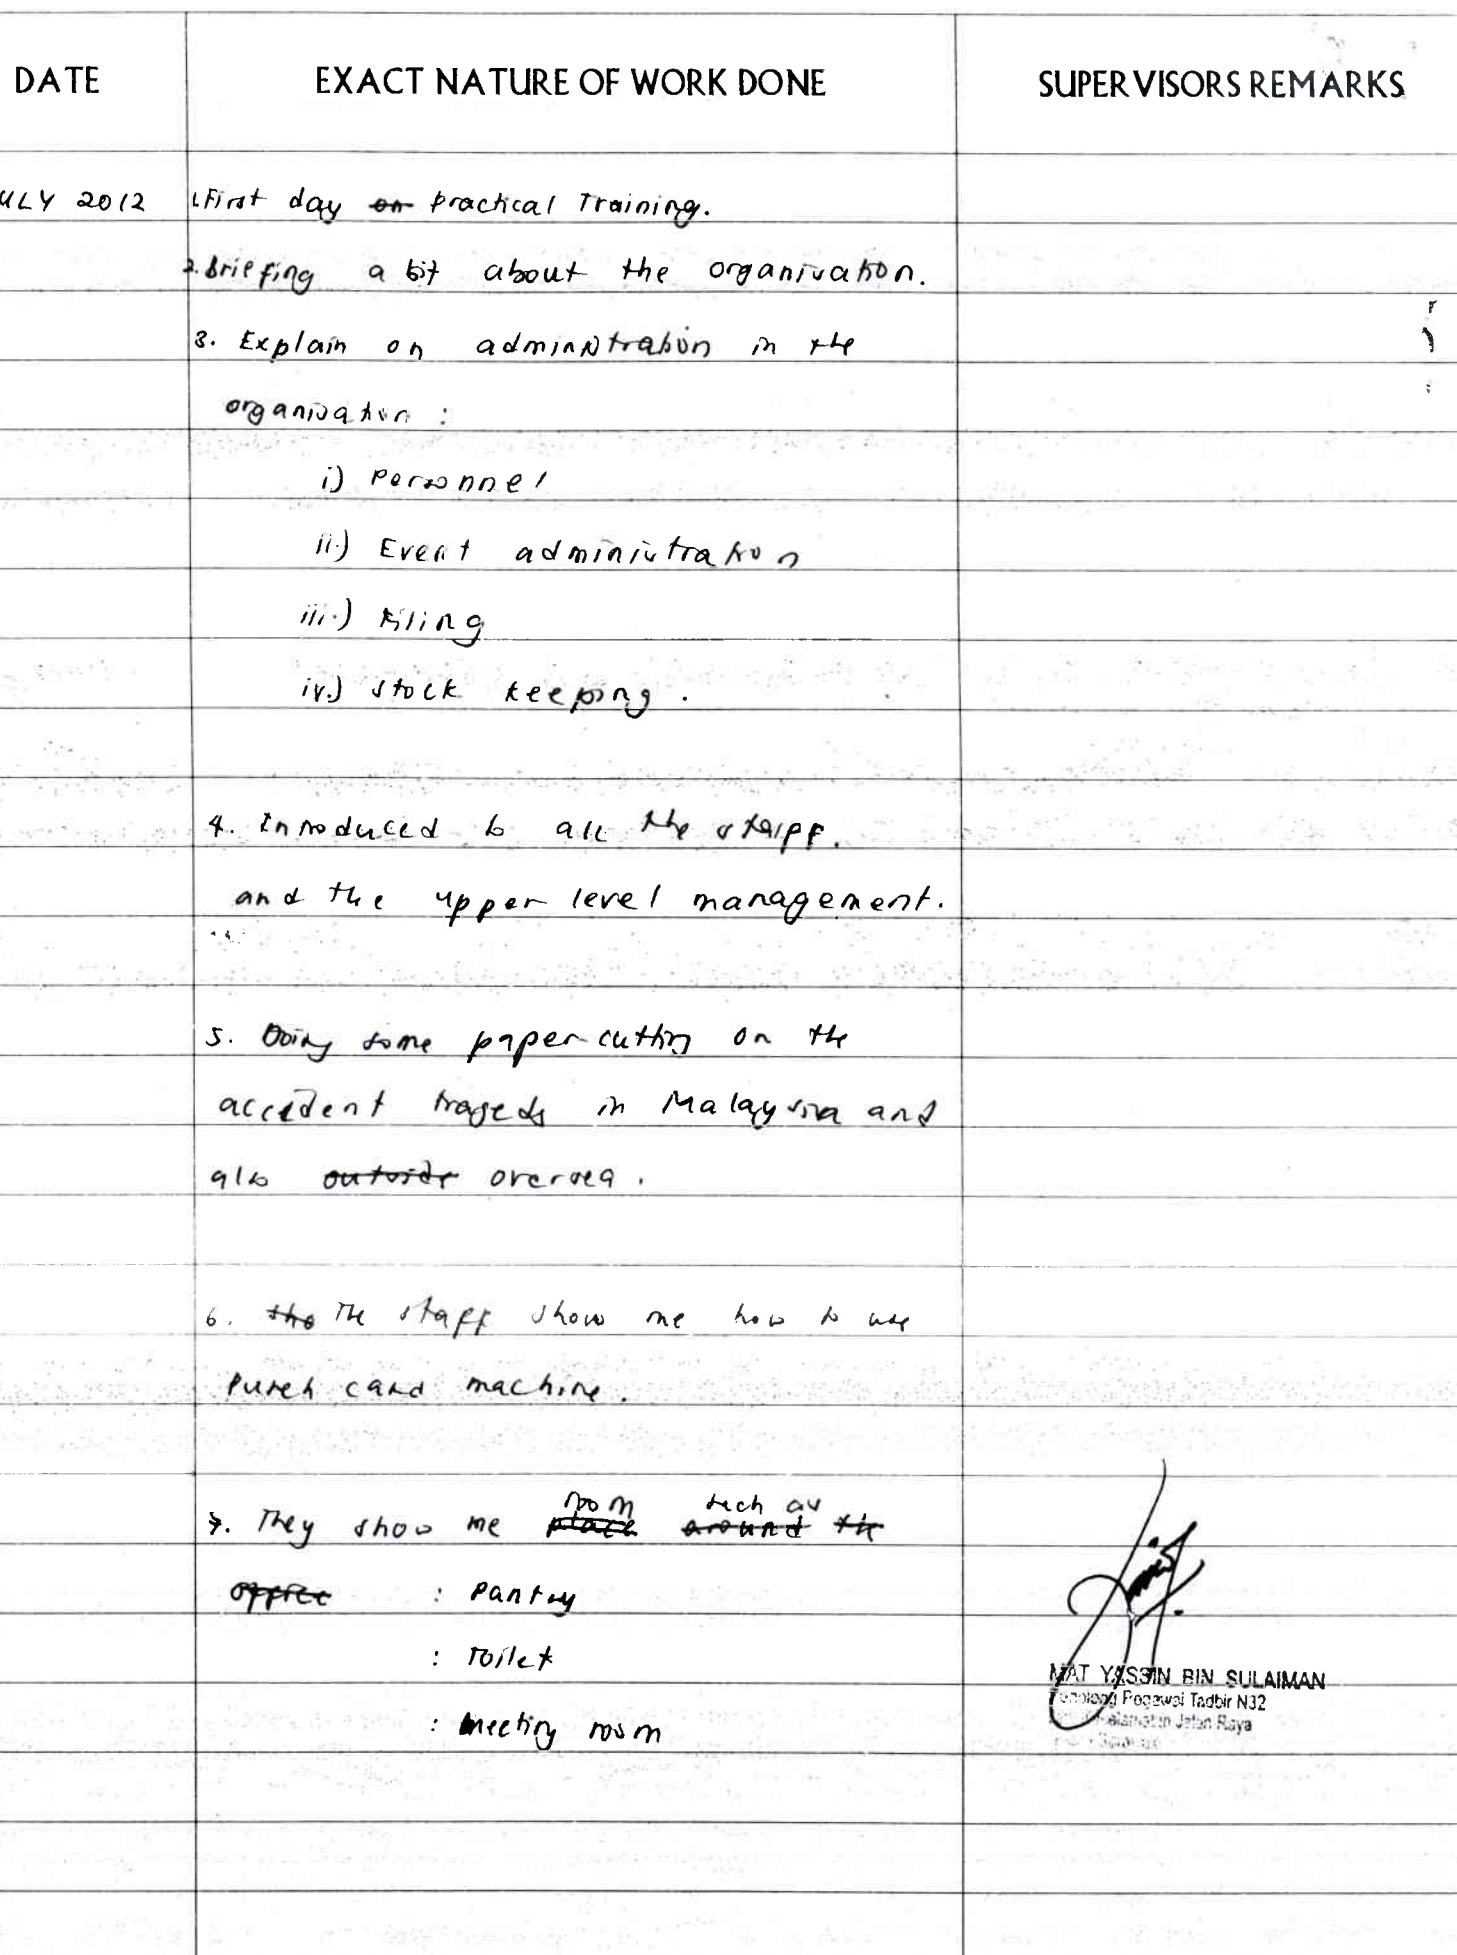 DATE EXACT NATURE OF WORK DONE SUPERVISORS REMARKS
ULY 2012 1. First day on practical Training.
2. briefing a bit about the organisation.
3. Explain on administration in the
organisation :
i) Personnel
ii.) Event administration
iii.) Filing
iv.) stock keeping.
4. Introduced to all the staff.
and the upper level management.
5. Doing some paper cutting on the
accident tragedy in Malaysia and
also outside oversea.
6. the The staff show me how to use
Punch card machine.
room such as
7. They show me place around the
office : Pantry
: Toilet
: Meeting room
MAT YASSIN BIN SULAIMAN
Penolong Pegawai Tadbir N32
Keselamatan Jalan Raya